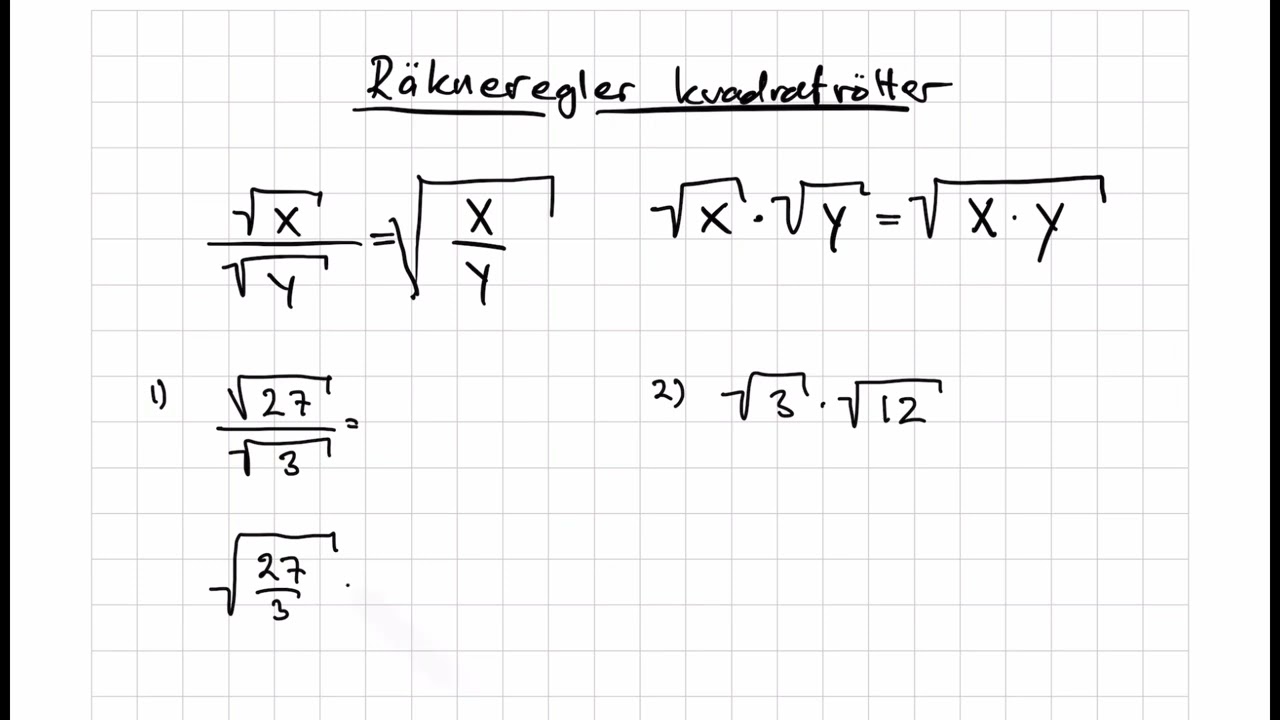 Räkneregler kvadratrötter
√X / √Y = √(X / Y)
√X · √Y = √(X · Y)
1) √27 / √3 =
2) √3 · √12
√(27 / 3)